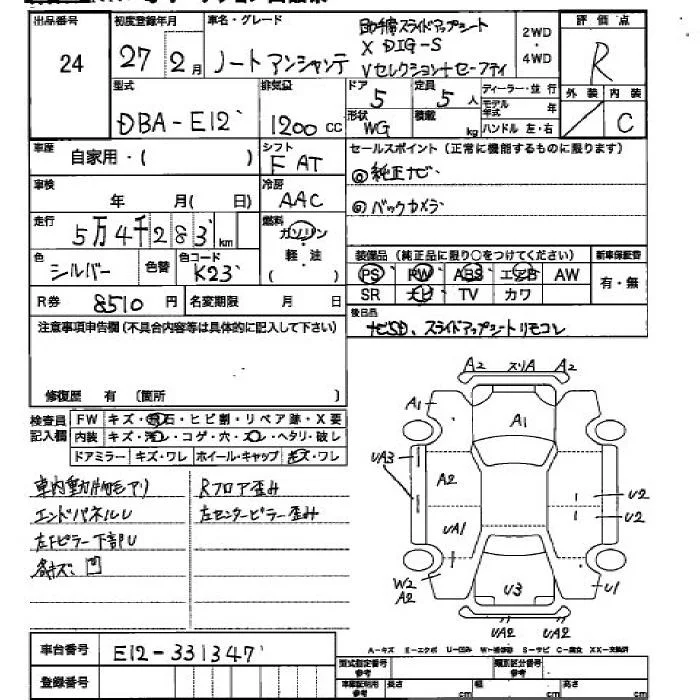 出品番号 24
初度登録年月 27 2月
車名・グレード ノート アンシャンテ
助手席スライドアップシート
X DIG-S
Vセレクション+セーフティ
2WD・4WD
評価点 R
型式 DBA-E12
排気量 1200cc
ドア 5
形状 WG
定員 5人
積載 kg
ディーラー・並行
モデル年式 年
ハンドル 左・右
外装 内装 C
車歴 自家用・( )
シフト FAT
セールスポイント(正常に機能するものに限ります)
◎純正ナビ
◎バックカメラ
車検 年 月( 日)
冷房 AAC
走行 5万4千283km
燃料 ガソリン
軽・油
( )
色 シルバー 色替 色コード K23
装備品(純正品に限り○をつけてください) 新車保証書
PS PW ABS エアB AW 有・無
SR ナビ TV カワ
R券 8510円 名変期限 月 日
後日品
ナビSD、スライドアップシートリモコン
注意事項申告欄(不具合内容等は具体的に記入して下さい)
修復歴 有 〔箇所 〕
検査員記入欄
FW キズ・飛石・ヒビ割・リペア跡・X要
内装 キズ・汚レ・コゲ・穴・スレ・ヘタリ・破レ
ドアミラー キズ・ワレ ホイール・キャップ キズ・ワレ
Rフロア歪み
エンドパネルU 左センターピラー歪み
左Fピラー下部U
A2 スリA A2
A1
A1
UA3
A2
U2
U2
UA1
W2
A2
U3
U1
UA2 UA2
A-キズ E-エクボ U-凹み W-補修跡 S-サビ C-腐食 XX-交換済
車台番号 E12-331347
登録番号
型式指定番号 参考 類別区分番号 参考
車庫証明用 参考 長さ cm 幅 cm 高さ cm